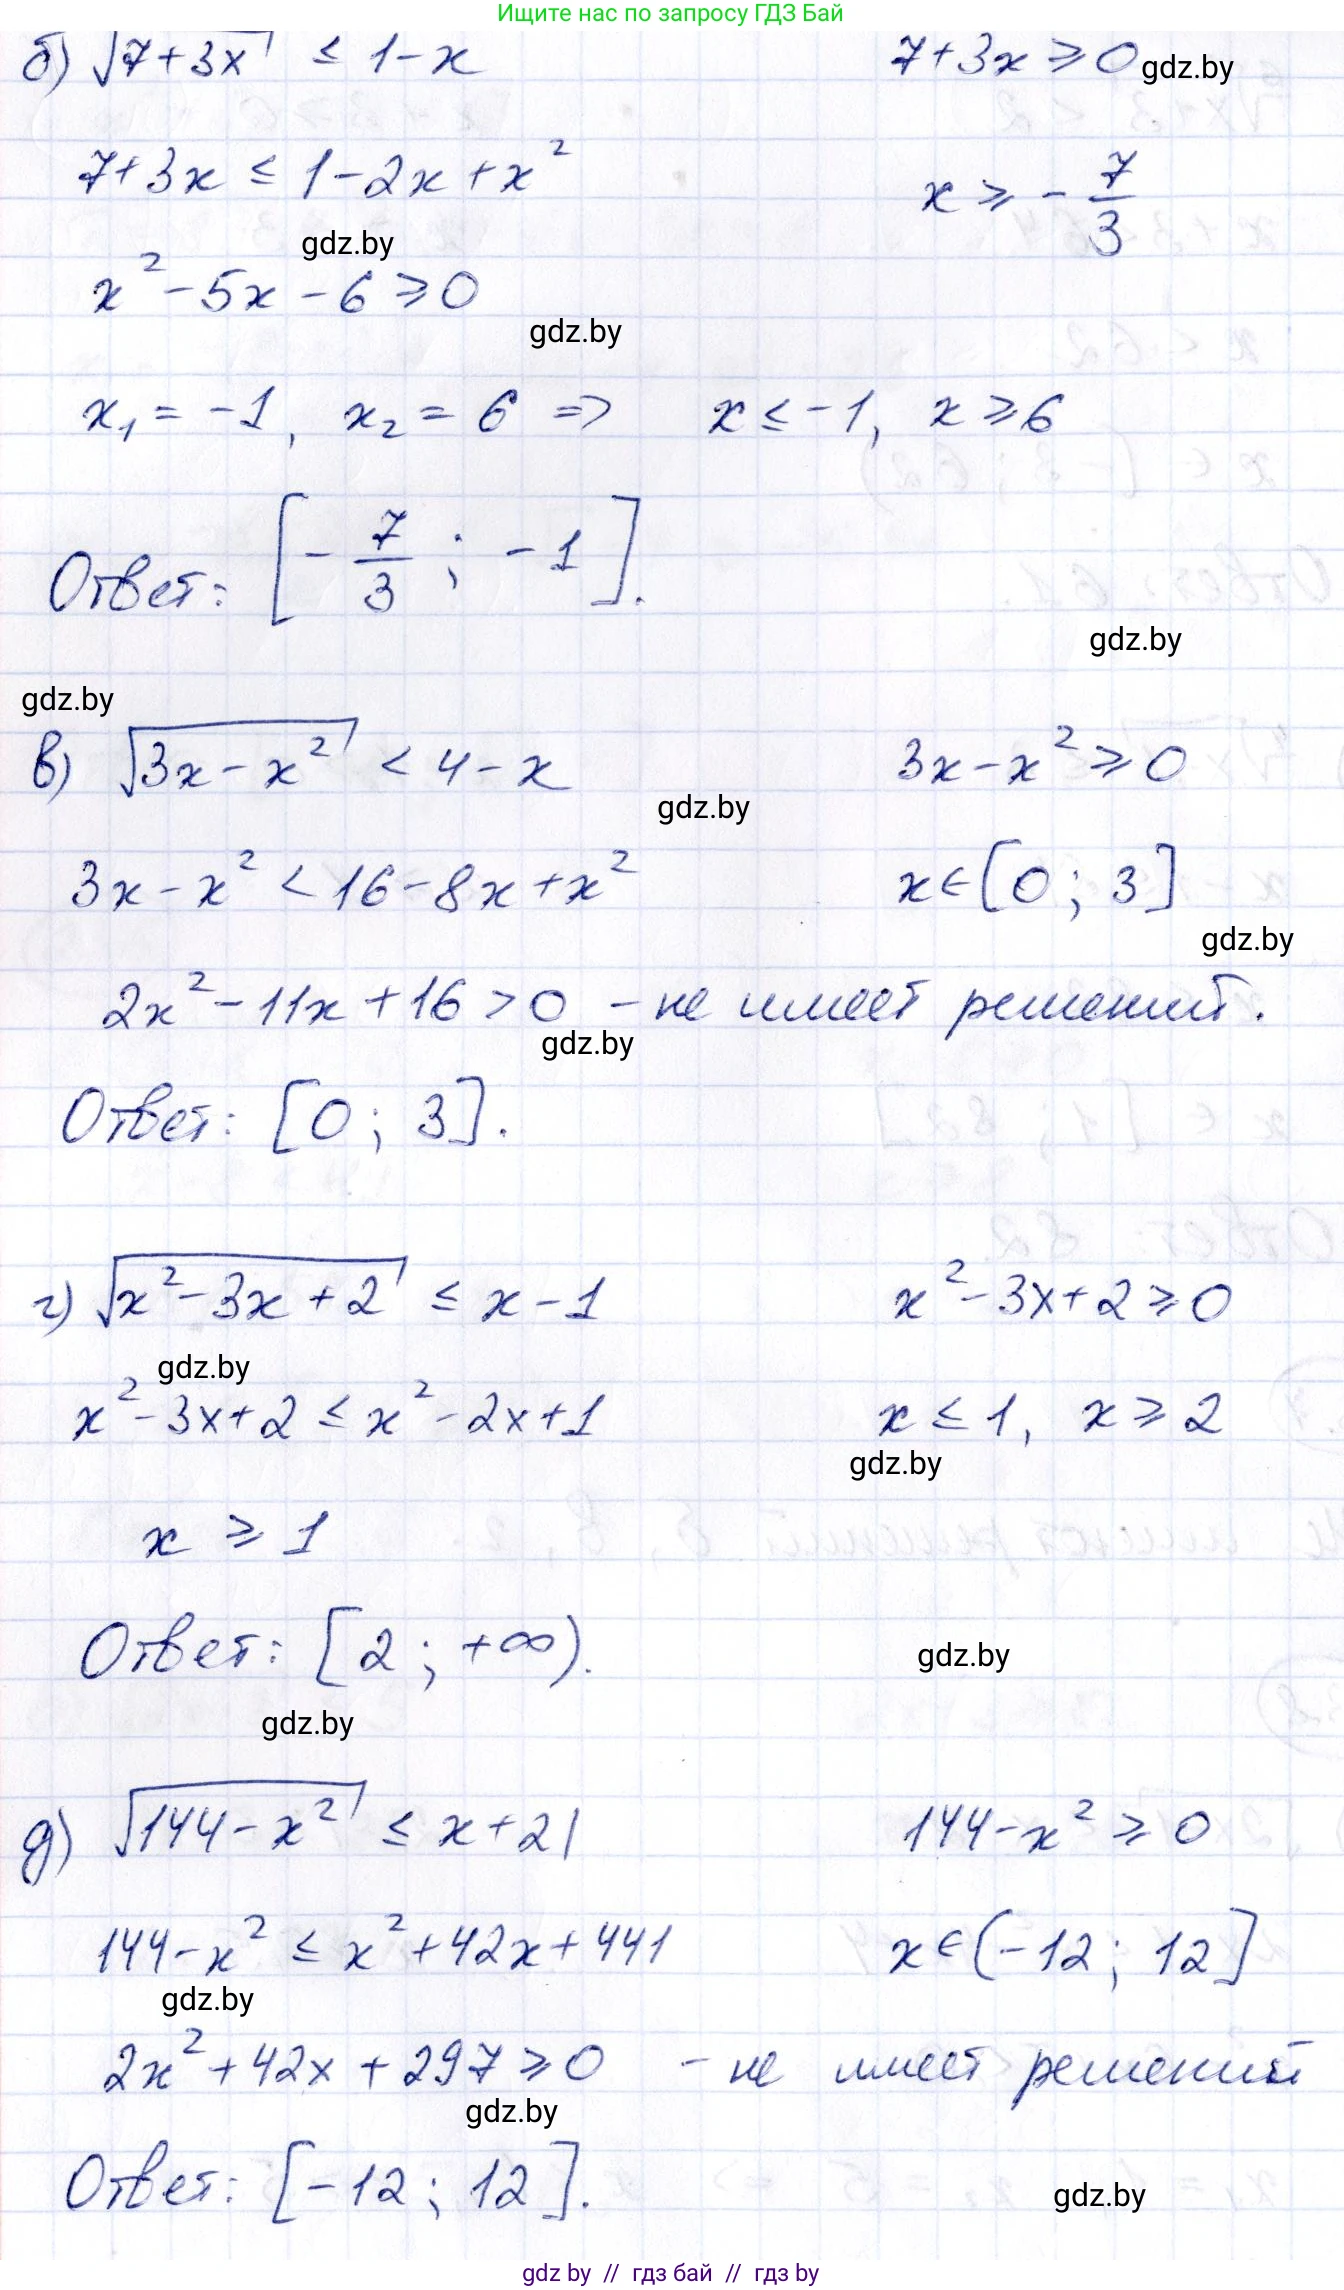 Ищите нас по запросу ГДЗ Бай
б) √(7+3x) ≤ 1-x 7+3x ≥ 0 gdz.by
7+3x ≤ 1-2x+x² x ≥ -7/3
gdz.by
x²-5x-6 ≥ 0
gdz.by
x₁ = -1, x₂ = 6 => x ≤ -1, x ≥ 6
Ответ: [-7/3; -1].
gdz.by
gdz.by
в) √(3x-x²) < 4-x 3x-x² ≥ 0
gdz.by
3x-x² < 16-8x+x² x∈[0; 3]
gdz.by
2x²-11x+16 > 0 - не имеет решений.
gdz.by
Ответ: [0; 3].
г) √(x²-3x+2) ≤ x-1 x²-3x+2 ≥ 0
gdz.by
x²-3x+2 ≤ x²-2x+1 x ≤ 1, x ≥ 2
gdz.by
x ≥ 1
Ответ: [2; +∞).
gdz.by
gdz.by
д) √(144-x²) ≤ x+21 144-x² ≥ 0
144-x² ≤ x²+42x+441 x∈(-12; 12]
gdz.by
2x²+42x+297 ≥ 0 - не имеет решений
gdz.by
Ответ: [-12; 12].
gdz.by
gdz by // гдз бай // гдз by